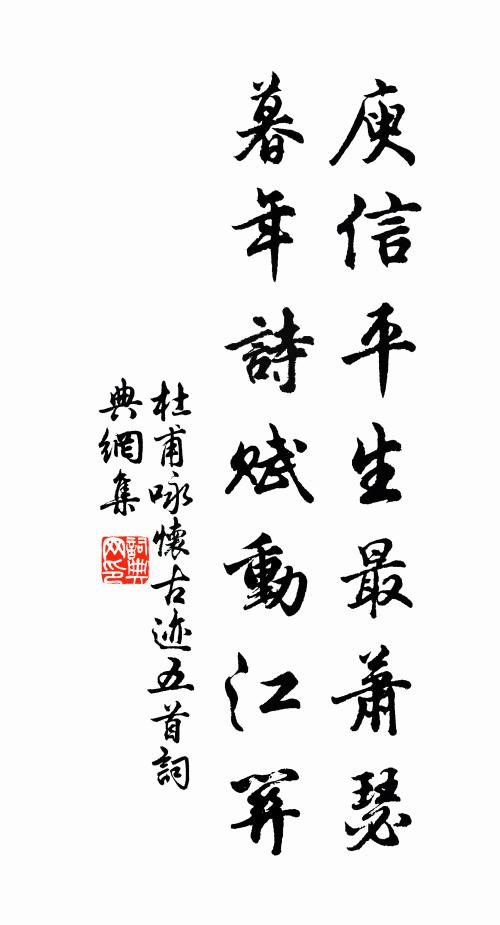 庾信平生最蕭瑟
暮年詩賦動江關
杜甫咏懷古迹五首詞
典網集
詞典
网印